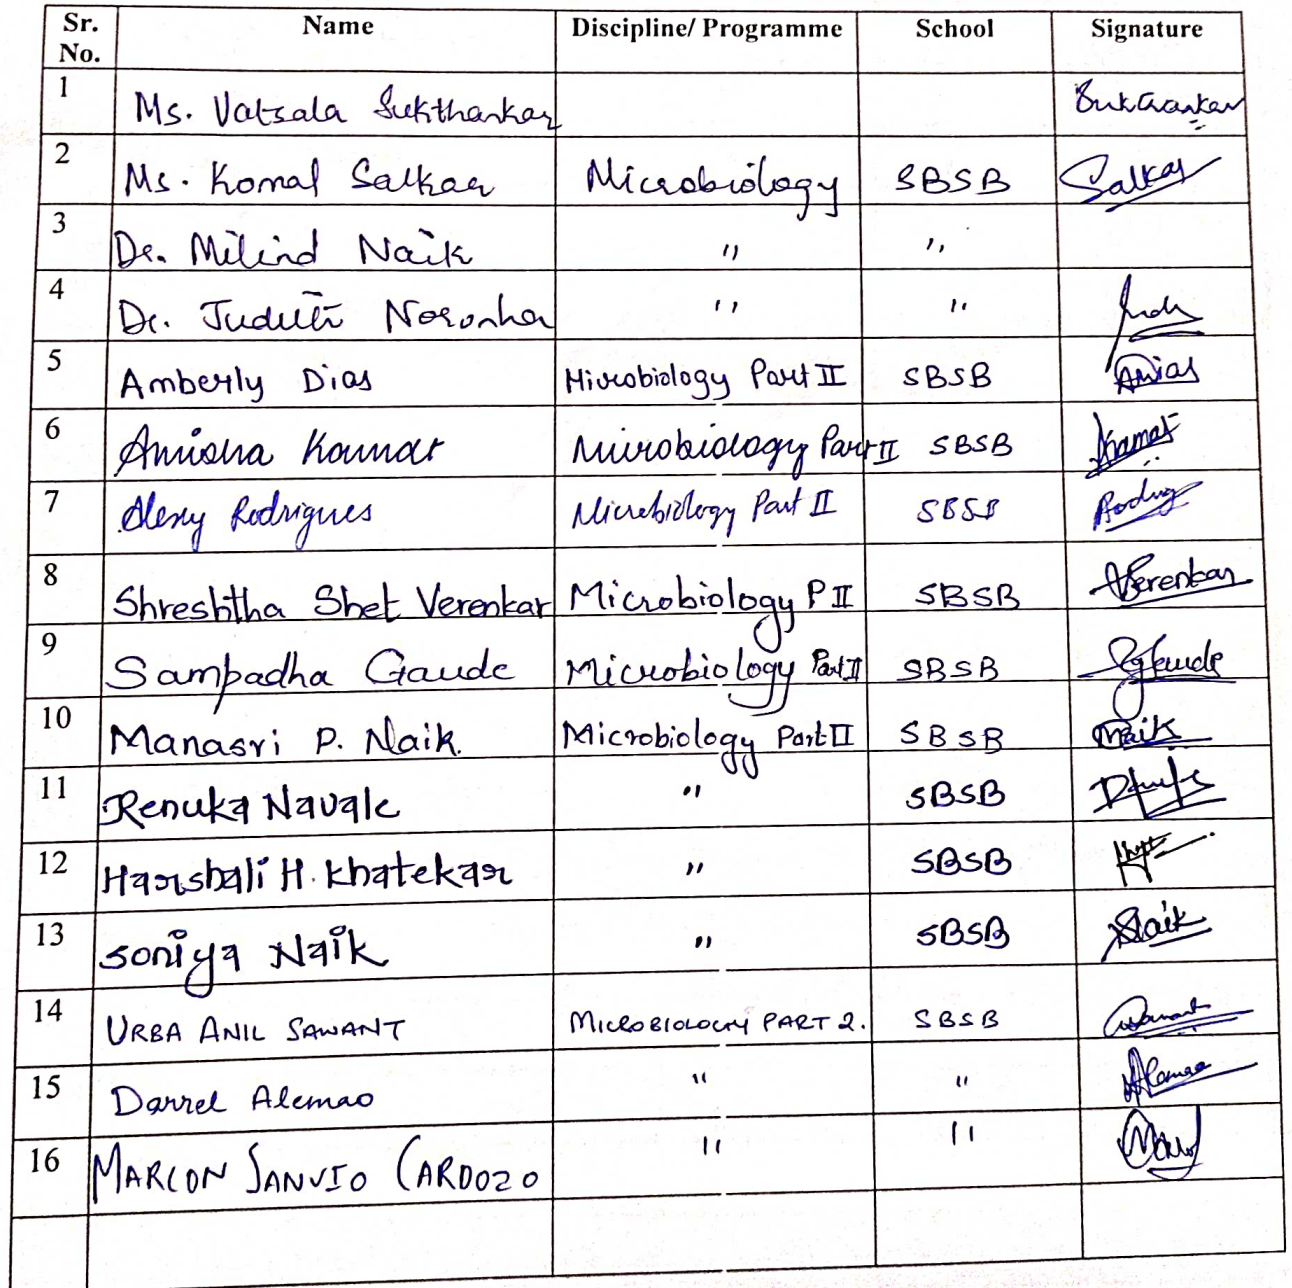 Sr. No. Name Discipline/ Programme School Signature
1 Ms. Vatsala Sukthankar Sukthankar
2 Ms. Komal Salkar Microbiology SBSB Salkar
3 Dr. Milind Naik " "
4 Dr. Judith Noronha " "
5 Amberly Dias Microbiology Part II SBSB ADias
6 Amisha Kamat Microbiology Part II SBSB Kamat
7 Alexy Rodrigues Microbiology Part II SBSB
8 Shreshtha Shet Verenkar Microbiology P II SBSB Verenkar
9 Sampadha Gaude Microbiology Part II SBSB Gaude
10 Manasri P. Naik. Microbiology Part II SBSB Naik
11 Renuka Navale " SBSB
12 Harshali H. Khatekar " SBSB
13 Soniya Naik " SBSB Naik
14 URBA ANIL SAWANT MICROBIOLOGY PART 2. SBSB
15 Darrel Alemao " " Alemao
16 MARLON SANVIO CARDOZO " "